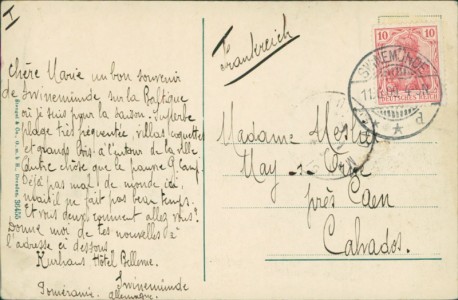 I
Frankreich
chère Marie un bon souvenir
de Swinemünde sur la Baltique
où je suis pour la saison. Superbe
plage très fréquentée, villas coquettes
et grands bois à l'entour de la ville
autre chose que ce pauvre
Déjà pas mal de monde ici,
mais il ne fait pas beau temps.
Et vous deux comment allez vous?
Donne moi de tes nouvelles à
l'adresse ci dessous.
Kurhaus Hôtel Bellevue.
Swinemünde
Poméranie. Allemagne.
Madame
May-s-Orne
près Caen
Calvados.
10 10
DEUTSCHES REICH
SWINEMÜNDE
d